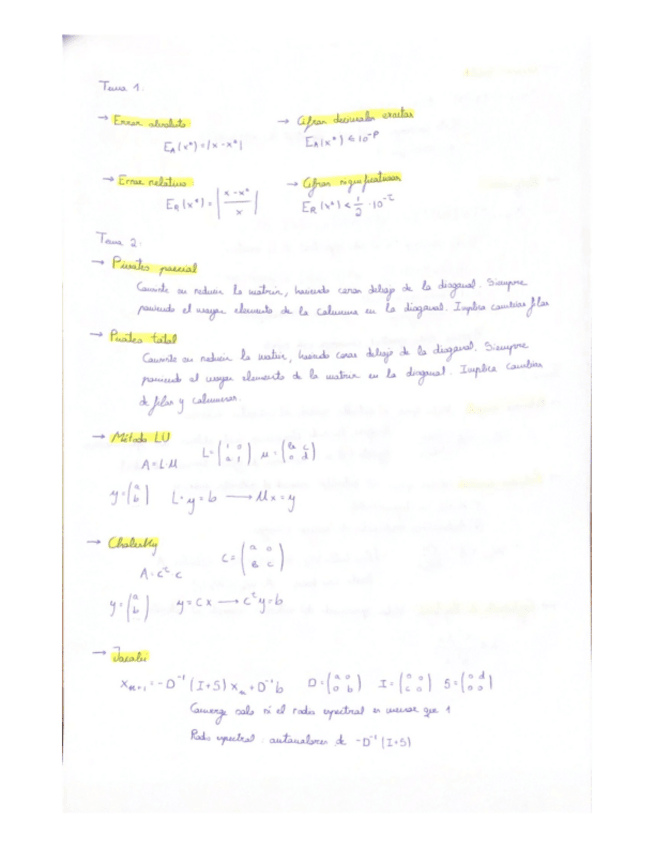 Tema 1.
→ Error absoluto → Cifras decimales exactas
E_A(x*) = |x - x*| E_A(x*) ≤ 10^-p
→ Error relativo: → Cifras significativas
E_R(x*) = |(x - x*)/x| E_R(x*) < 1/2 · 10^-t
Tema 2:
→ Pivoteo parcial
Consiste en reducir la matriz, haciendo ceros debajo de la diagonal. Siempre
poniendo el mayor elemento de la columna en la diagonal. Implica cambiar filas
→ Pivoteo total
Consiste en reducir la matriz, haciendo ceros debajo de la diagonal. Siempre
poniendo el mayor elemento de la matriz en la diagonal. Implica cambiar
de filas y columnas.
→ Método LU
A = L·U L = (1 0; a 1) U = (b c; 0 d)
y = (a; b) L·y = b → Ux = y
→ Cholesky
A = C^t C C = (a 0; b c)
y = (a; b) y = Cx → C^t y = b
→ Jacobi
x_m+1 = -D^-1 (I+S) x_m + D^-1 b D = (a 0; 0 b) I = (0 0; c 0) S = (0 d; 0 0)
Converge solo si el radio espectral es menor que 1
Radio espectral: autovalores de -D^-1 (I+S)